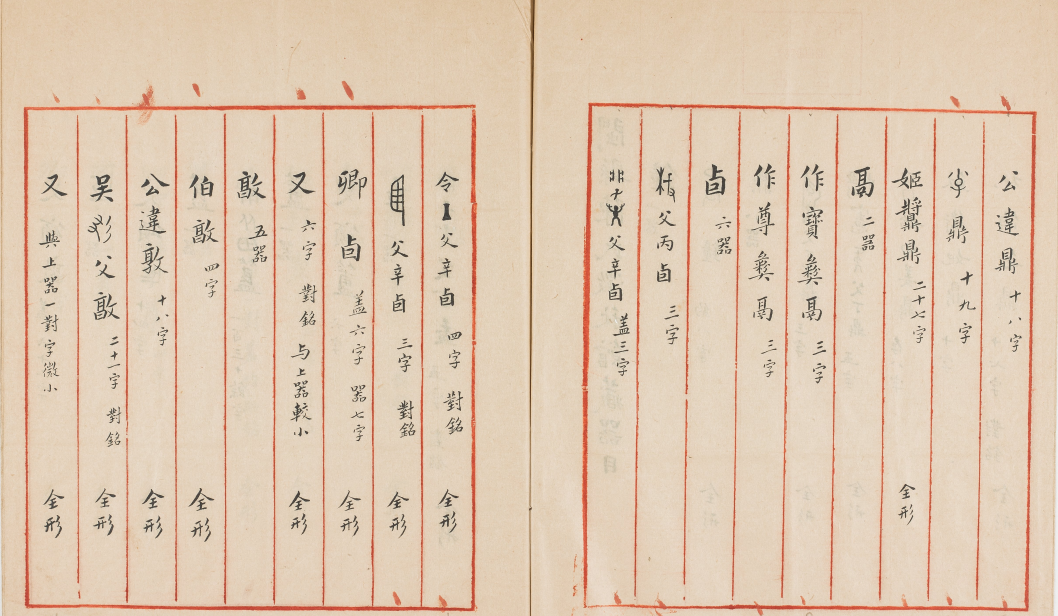 公違鼎 十八字
鼎 十九字
姬鼎 二十七字 全形
鬲 二器
作寶彝鬲 三字
作尊彝鬲 三字
卣 六器
父丙卣 三字
父辛卣 盖三字
令父辛卣 四字 對銘 全形
父辛卣 三字 對銘 全形
卿卣 盖六字 器七字 全形
又 六字 對銘 与上器較小 全形
敦 五器
伯敦 四字 全形
公違敦 十八字 全形
吴父敦 二十一字 對銘 全形
又 與上器一對字微小 全形